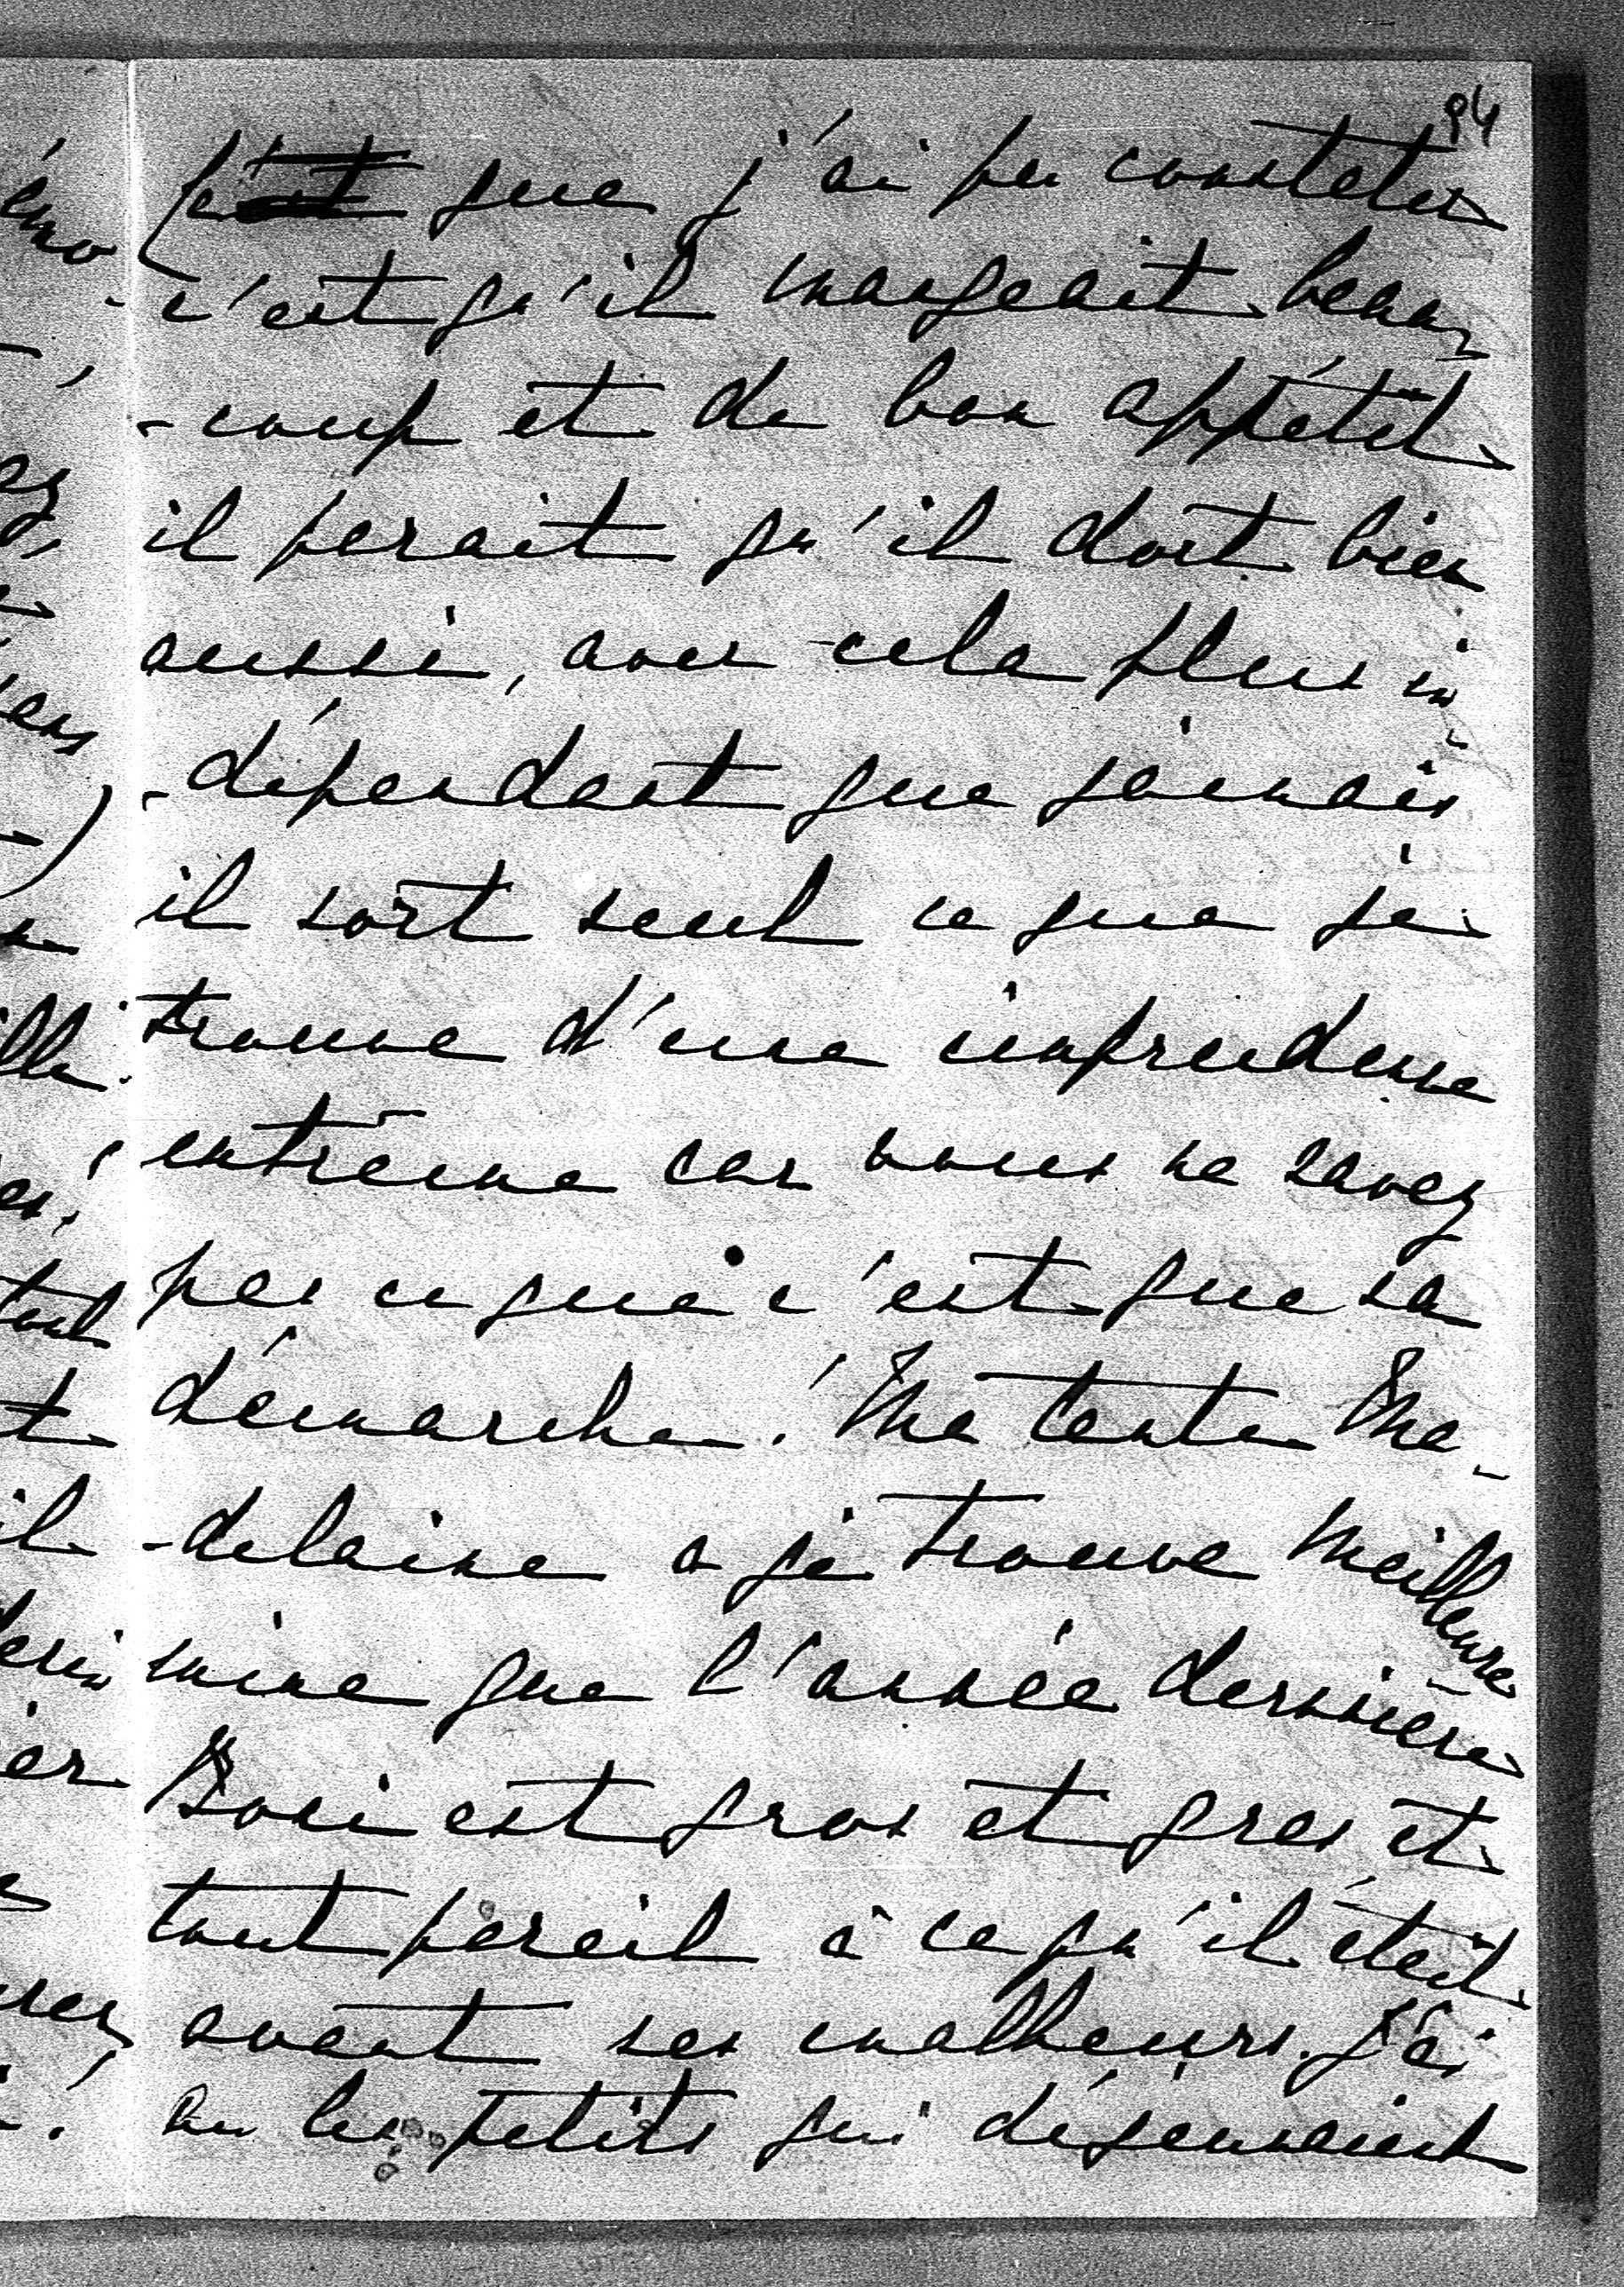 94
que j'ai pu constater
c'est qu'il mangeait beau
-coup et de bon appétit
il parait qu'il dort bien
aussi, avec cela plus in
-dépendant que jamais
il sort seul ce que je
trouve d'une imprudence
extrême car vous ne savez
pas ce que c'est que sa
démarche! Ma tante Ma-
-delaine a je trouve meilleure
mine que l'année dernière
est gros et gras et
tout pareil à ce qu'il était
avant ses malheurs. J'ai
vu les petits qui déjeunaient